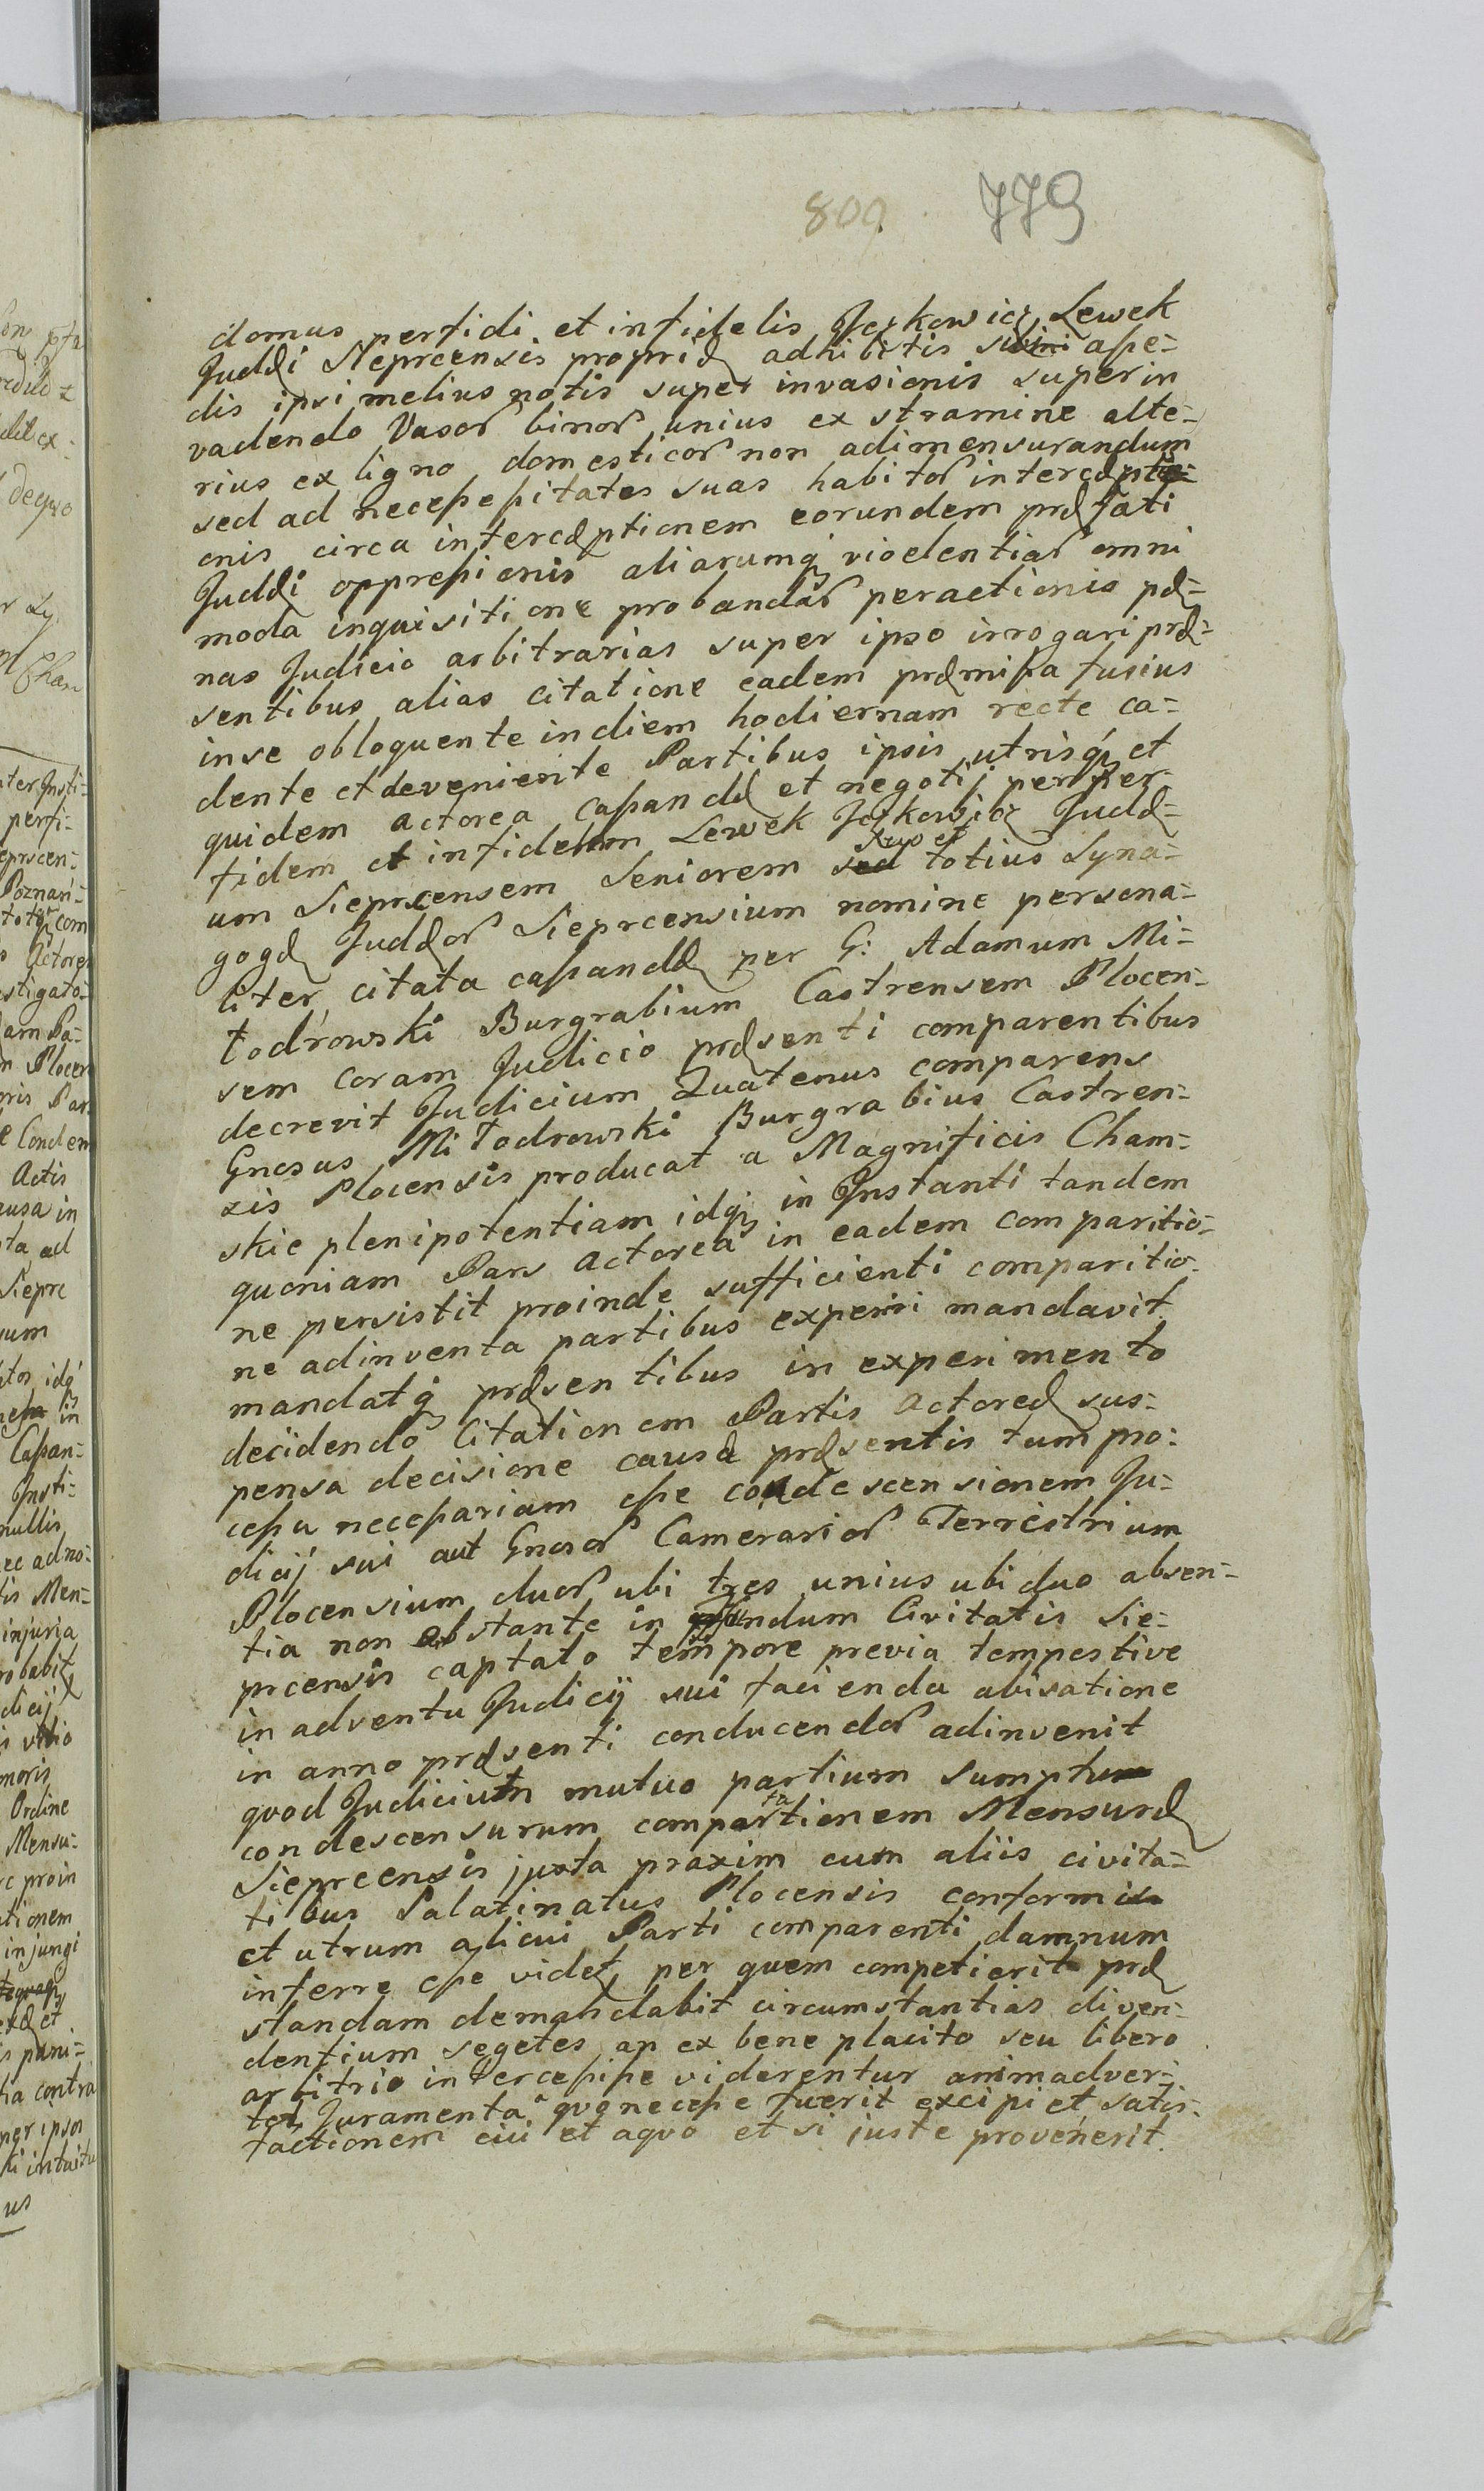 809. 779
domus perfidi et infidelis Joskowicz Lewek
Judæi Sieprcensis propriæ adhibitis asse-
dis ipsi melius notis super invasionis superin
vadendo Vasor binor unius ex stramine alte-
rius ex ligno domesticor non adimensurandum
sed ad necessessitates suas habitor intercæpti-
onis circa intercæptionem eorundem præfati
Judæi oppressionis aliarumq violentiar omni
moda inquisitione probandar peractionis pæ-
nas Judicio arbitrarias super ipso irrogari præ-
sentibus alias citatione eadem præmissa fusius
inse obloquente in diem hodiernam recte ca-
dente et deveniente Partibus ipsis utrisq et
quidem actorea cassandæ et negotij per Per-
fidem et infidelem Lewek Joskowicz Judæ-
um Sieprcensem Seniorem suo et totius Syna-
gogæ Judæor Sieprcensium nomine persona-
liter citata cassandæ per G: Adamum Mi-
todrowski Burgrabium Castrensem Plocen-
sem coram Judicio præsenti comparentibus
decrevit Judicium Quatenus comparens
Gnosus Mitodrowski Burgrabius Castren-
sis Plocensis producat a Magnificis Cham-
skie plenipotentiam idq in Instanti tandem
quoniam Pars actorea in eadem comparitio-
ne persistit proinde sufficienti comparitio-
ne adinventa partibus experiri mandavit
mandatq præsentibus in experimento
decidendo Citationem Partis actoreæ sus-
pensa decisione causæ præsentis tum pro-
cessu necessariam esse condescensionem Ju-
dicij sui aut Gnosor Camerarior Terrestrium
Plocensium duor ubi tres unius ubi duo absen-
tia non obstante in fundum Civitatis Sie-
prcensis captato tempore previa tempestive
in adventu Judicij sui facienda avisatione
in anno præsenti conducendor adinvenit
quod Judicium mutuo partium sumptu
condescensurum compartationem Mensuræ
Sieprcensis juxta praxim cum aliis civita-
tibus Palatinatus Plocensis conformis
et utrum alicui Parti comparenti damnum
inferre esse videt per quem competierit præ
standam demandabit circumstantias diven-
dentium segetes an ex bene placito seu libero
arbitrio intercessisse viderentur animadver-
tet Juramenta quo necesse fuerit excipi et satis-
factionem cui et aquo et si juste provenerit.